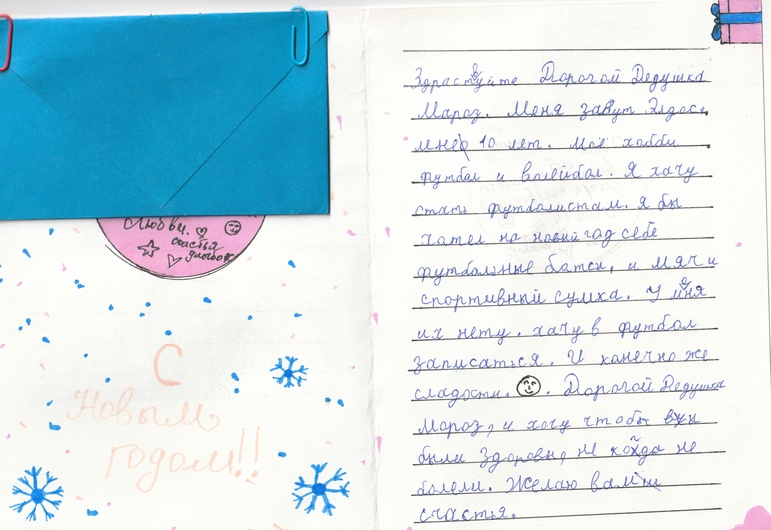 Любви.
счастья
С
Новым
годом!!
Здраствуйте Дорогой Дедушка
Мароз. Меня завут Элдос,
мне 10 лет. Моё хобби
футбал и волейбал. Я хачу
стать футбалистам. Я бы
хател на новый гад себе
футбальные батсы, и мяч и
спортивный сумка. У меня
их нету. хачу в футбол
записаться. И канечно же
сладости. Дарагой Дедушка
Мороз, и хочу чтобы вы
были здоровы, не когда не
болели. Желаю вам
счастья.